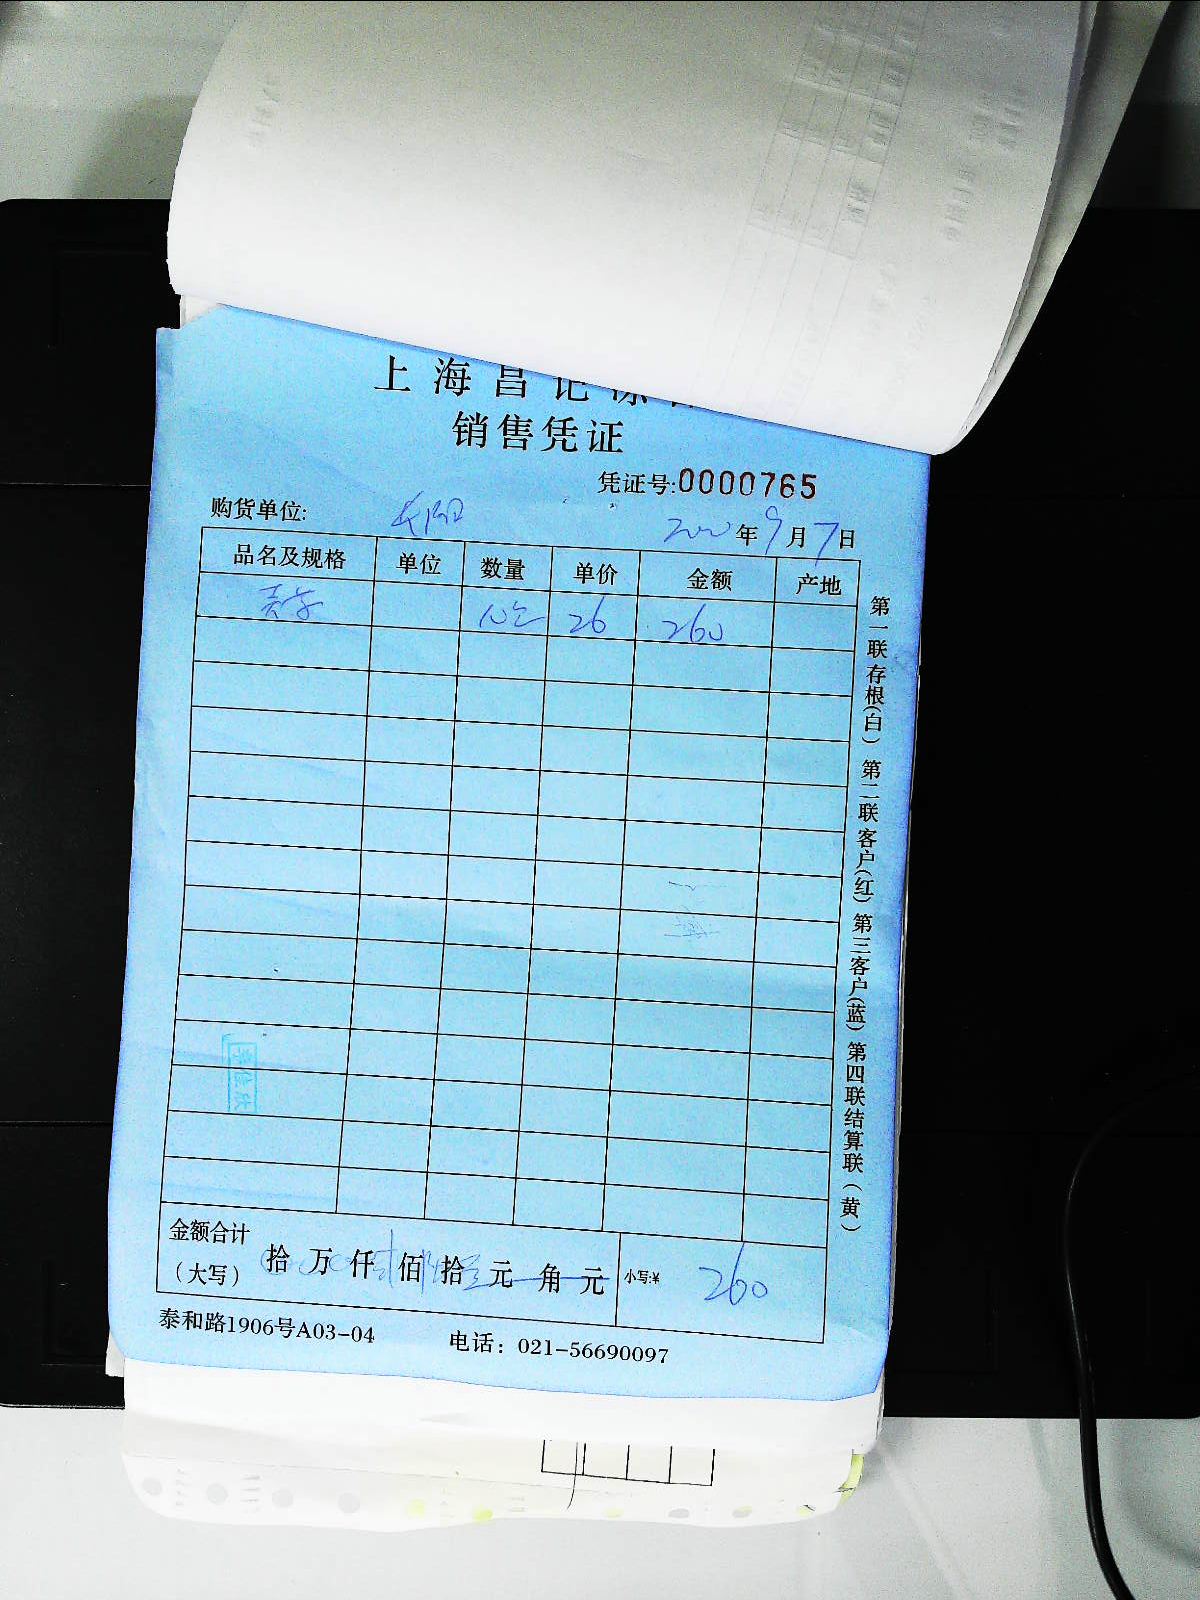 上海昌记
销售凭证
凭证号:0000765
购货单位: 2020年9月7日
品名及规格 单位 数量 单价 金额 产地
26 260
金额合计
(大写) 拾 万 仟 佰 拾 元 角 元 小写:¥ 260
泰和路1906号A03-04 电话：021-56690097
第一联存根(白) 第二联客户(红) 第三客户(蓝) 第四联结算联(黄)